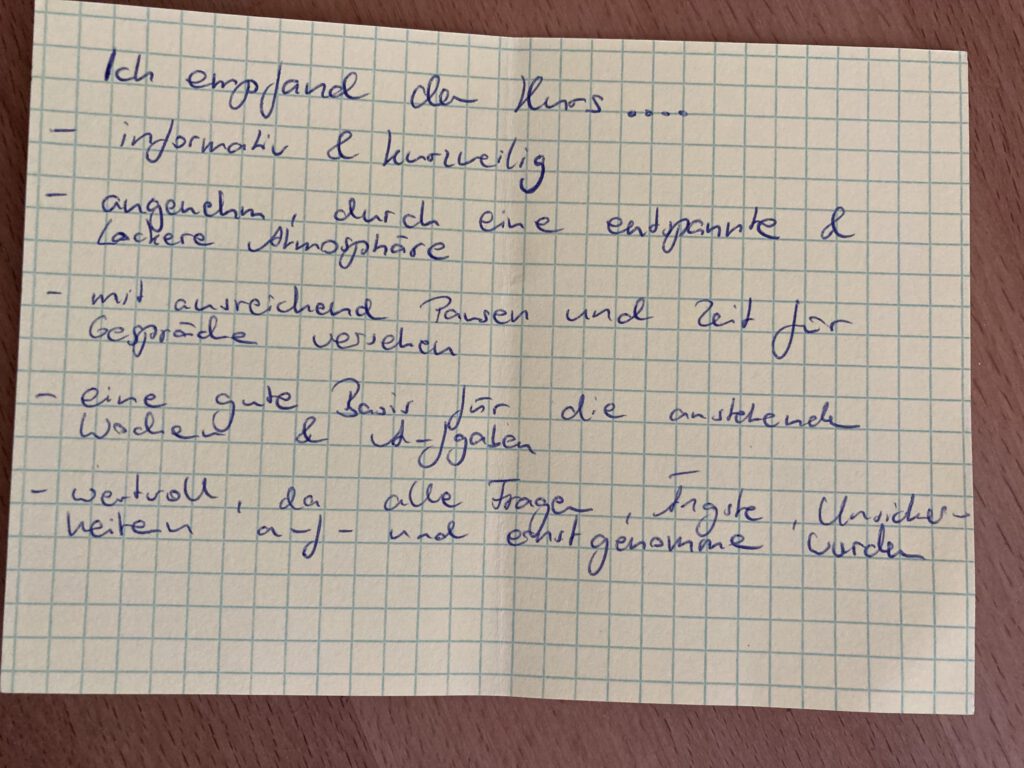 Ich empfand den Kurs ....
- informativ & kurzweilig
- angenehm, durch eine entspannte &
lockere Atmosphäre
- mit ausreichend Pausen und Zeit für
Gespräche versehen
- eine gute Basis für die anstehende
Wochen & Aufgaben
- wertvoll, da alle Fragen, Ängste, Unsicher-
heiten auf- und ernst genomme wurden